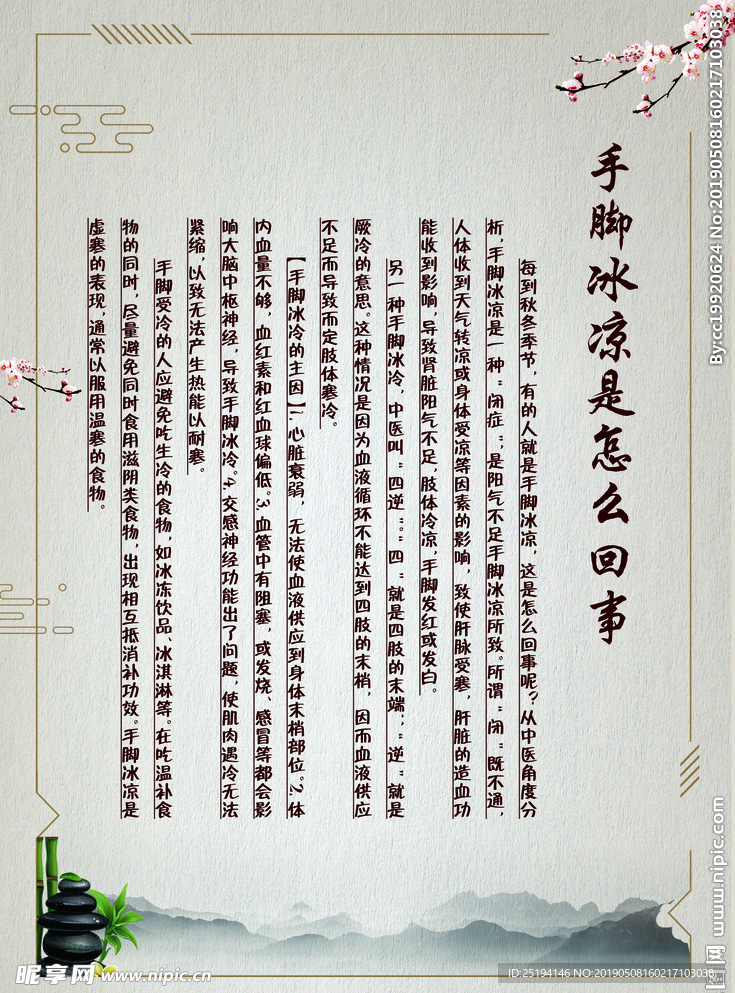 手脚冰凉是怎么回事
每到秋冬季节,有的人就是手脚冰凉,这是怎么回事呢?从中医角度分
析,手脚冰凉是一种“闭症”,是阳气不足手脚冰凉所致。所谓“闭”既不通,
人体收到天气转凉或身体受凉等因素的影响,致使肝脉受寒,肝脏的造血功
能收到影响,导致肾脏阳气不足,肢体冷凉,手脚发红或发白。
另一种手脚冰冷,中医叫“四逆”。“四”就是四肢的末端;“逆”就是
厥冷的意思。这种情况是因为血液循环不能达到四肢的末梢,因而血液供应
不足而导致而定肢体寒冷。
【手脚冰冷的主因】1.心脏衰弱,无法使血液供应到身体末梢部位。2.体
内血量不够,血红素和红血球偏低。3.血管中有阻塞,或发烧、感冒等都会影
响大脑中枢神经,导致手脚冰冷。4.交感神经功能出了问题,使肌肉遇冷无法
紧缩,以致无法产生热能以耐寒。
手脚受冷的人应避免吃生冷的食物,如冰冻饮品、冰淇淋等。在吃温补食
物的同时,尽量避免同时食用滋阴类食物,出现相互抵消补功效。手脚冰凉是
虚寒的表现,通常以服用温寒的食物。
By:cc19920624 No:20190508160217103038
www.nipic.com 昵图网
昵享网 www.nipic.cn
ID:25194146 NO:20190508160217103038